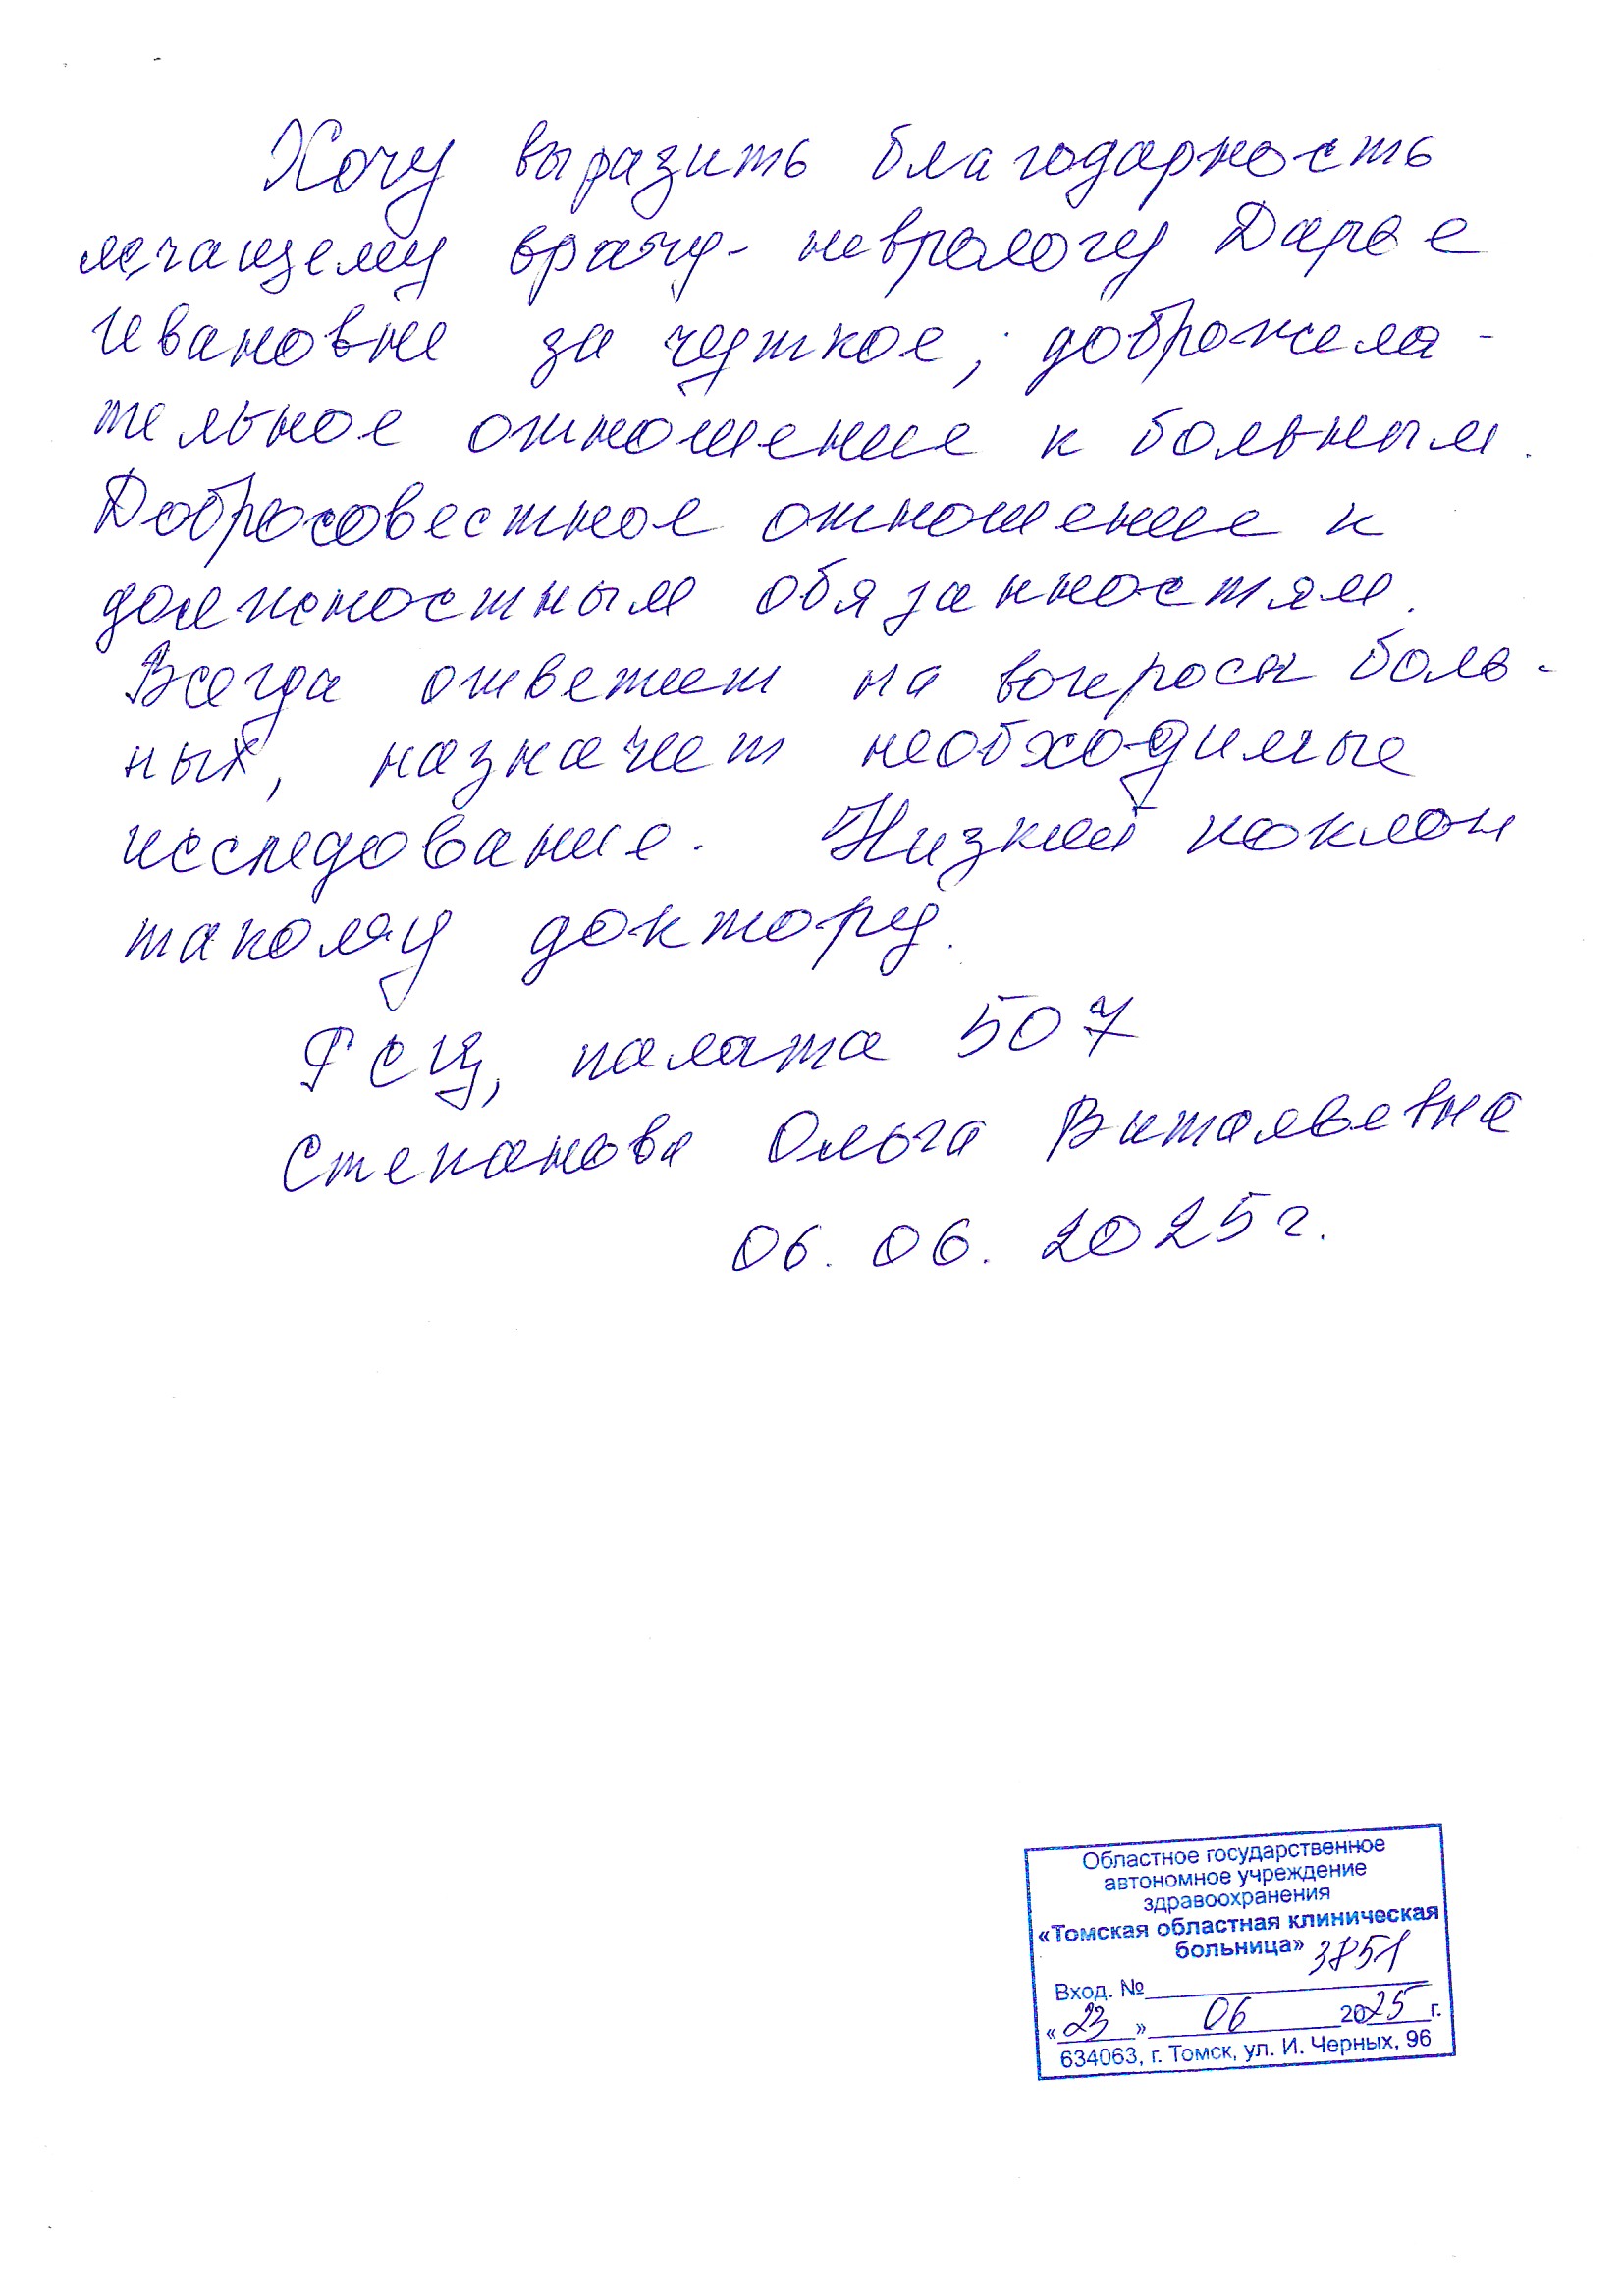 Хочу выразить благодарность
лечащему врачу-неврологу Дарье
Ивановне за чуткое, доброжела-
тельное отношение к больным.
Добросовестное отношение к
должностным обязанностям.
Всегда ответит на вопросы боль-
ных, назначет необходимые
исследование. Низкий поклон
такому доктору.
РСЦ, палата 507
Степанова Ольга Витальевна
06.06.2025г.
Областное государственное
автономное учреждение
здравоохранения
«Томская областная клиническая
больница»
Вход. № 3851
«23» 06 2025 г.
634063, г. Томск, ул. И. Черных, 96